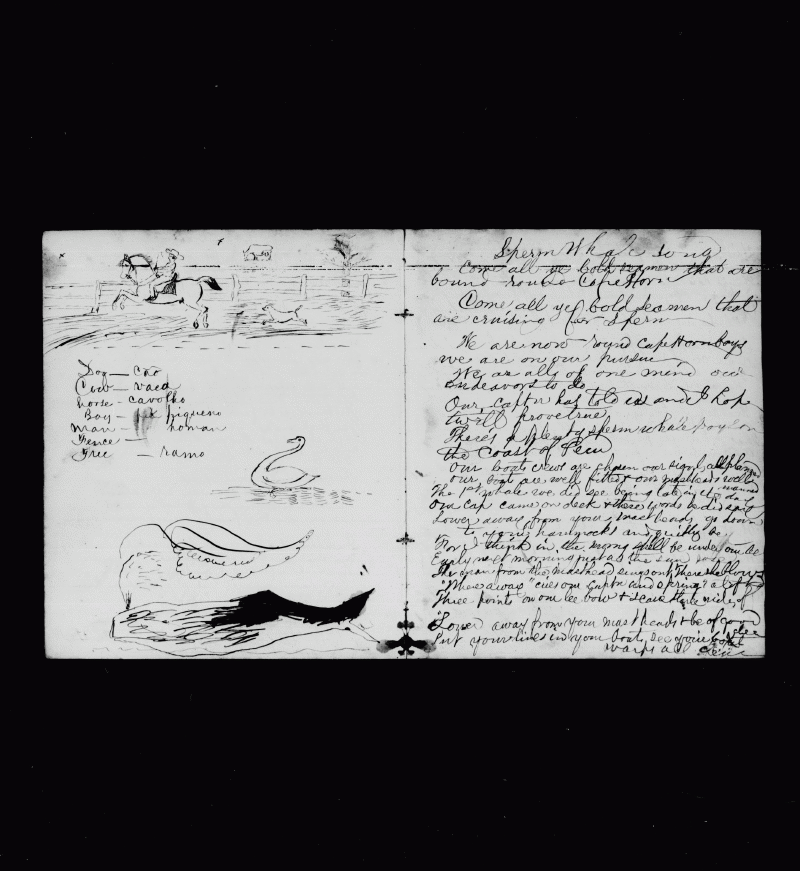 Dog - cao
Cow - vaca
horse - cavolho
Boy - piqueno
man - homan
Fence -
Tree - ramo
Sperm Whale song
Come all ye bold seamen that are
bound round Cape Horn
Come all ye bold seamen that
are cruising for sperm
We are now round Cape Horn boys
we are on our pursue
We are all of one mind our
endeavors to do
Our captn has told us and I hope
twill prove true
There's a plenty sperm whale boys on
the Coast of Peru
Our boats crews are chosen our signals all
our boats are well fitted & our mastheads well manned
The 1st whale we did see being late in the day
Our Cap came on deck & these words he did say
Lower away from your mast heads go down
to your hammocks and quietly be
For I think in the morng shall be under our lee
Early next morning just as the sun
The man from the Masthead sung out There she blows
"Where away" cries our Captn and springs aloft
Three points on our lee bow &
"Lower away from your mast heads & be of good
Put your lines in your boats, see your
warps all clear